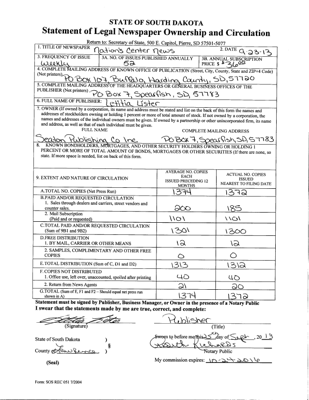 STATE OF SOUTH DAKOTA
Statement of Legal Newspaper Ownership and Circulation
Return to: Secretary of State, 500 E. Capitol, Pierre, SD 57501-5077
1. TITLE OF NEWSPAPER Nation's Center News 2. DATE 9-23-13
3. FREQUENCY OF ISSUE Weekly 3A. NO. OF ISSUES PUBLISHED ANNUALLY 52 3B. ANNUAL SUBSCRIPTION PRICE $ 36.00
4. COMPLETE MAILING ADDRESS OF KNOWN OFFICE OF PUBLICATION (Street, City, County, State and ZIP+4 Code)
(Not printers) PO Box 107, Buffalo, Harding County, SD, 57720
5. COMPLETE MAILING ADDRESS OF THE HEADQUARTERS OR GENERAL BUSINESS OFFICES OF THE
PUBLISHER (Not printers) PO Box 7, Spearfish, SD, 57783
6. FULL NAME OF PUBLISHER: Letitia Lister
7. OWNER (If owned by a corporation, its name and address must be stated and list on the back of this form the names and
addresses of stockholders owning or holding 1 percent or more of total amount of stock. If not owned by a corporation, the
names and addresses of the individual owners must be given. If owned by a partnership or other unincorporated firm, its name
and address, as well as that of each individual must be given.
FULL NAME COMPLETE MAILING ADDRESS
Seaton Publishing Co Inc. PO Box 7, Spearfish, SD, 57783
8. KNOWN BONDHOLDERS, MORTGAGES, AND OTHER SECURITY HOLDERS OWNING OR HOLDING 1
PERCENT OR MORE OF TOTAL AMOUNT OF BONDS, MORTGAGES OR OTHER SECURITIES (If there are none, so
state. If more space is needed, list on back of this form.
9. EXTENT AND NATURE OF CIRCULATION AVERAGE NO. COPIES EACH ISSUED PRECEDING 12 MONTHS ACTUAL NO. COPIES ISSUED NEAREST TO FILING DATE
A. TOTAL NO. COPIES (Net Press Run) 1374 1372
B. PAID AND/OR REQUESTED CIRCULATION
1. Sales through dealers and carriers, street vendors and
counter sales. 200 185
2. Mail Subscription
(Paid and or requested) 1101 1101
C. TOTAL PAID AND/OR REQUESTED CIRCULATION
(Sum of 9B1 and 9B2) 1301 1300
D. FREE DISTRIBUTION
1. BY MAIL, CARRIER OR OTHER MEANS 12 12
2. SAMPLES, COMPLIMENTARY AND OTHER FREE
COPIES 0 0
E. TOTAL DISTRIBUTION (Sum of C, D1 and D2) 1313 1312
F. COPIES NOT DISTRIBUTED
1. Office use, left over, unaccounted, spoiled after printing 40 40
2. Return from News Agents 21 20
G. TOTAL (Sum of E, F1 and F2 - Should equal net press run
shown in A) 1374 1372
Statement must be signed by Publisher, Business Manager, or Owner in the presence of a Notary Public
I swear that the statements made by me are true, correct, and complete:
Publisher
(Signature) (Title)
State of South Dakota ) Sworn to before me this 23rd day of Sept, 2013
§
County of Lawrence )
Notary Public
(Seal) My commission expires: 10-24-2016
Form: SOS REC 051 7/2004